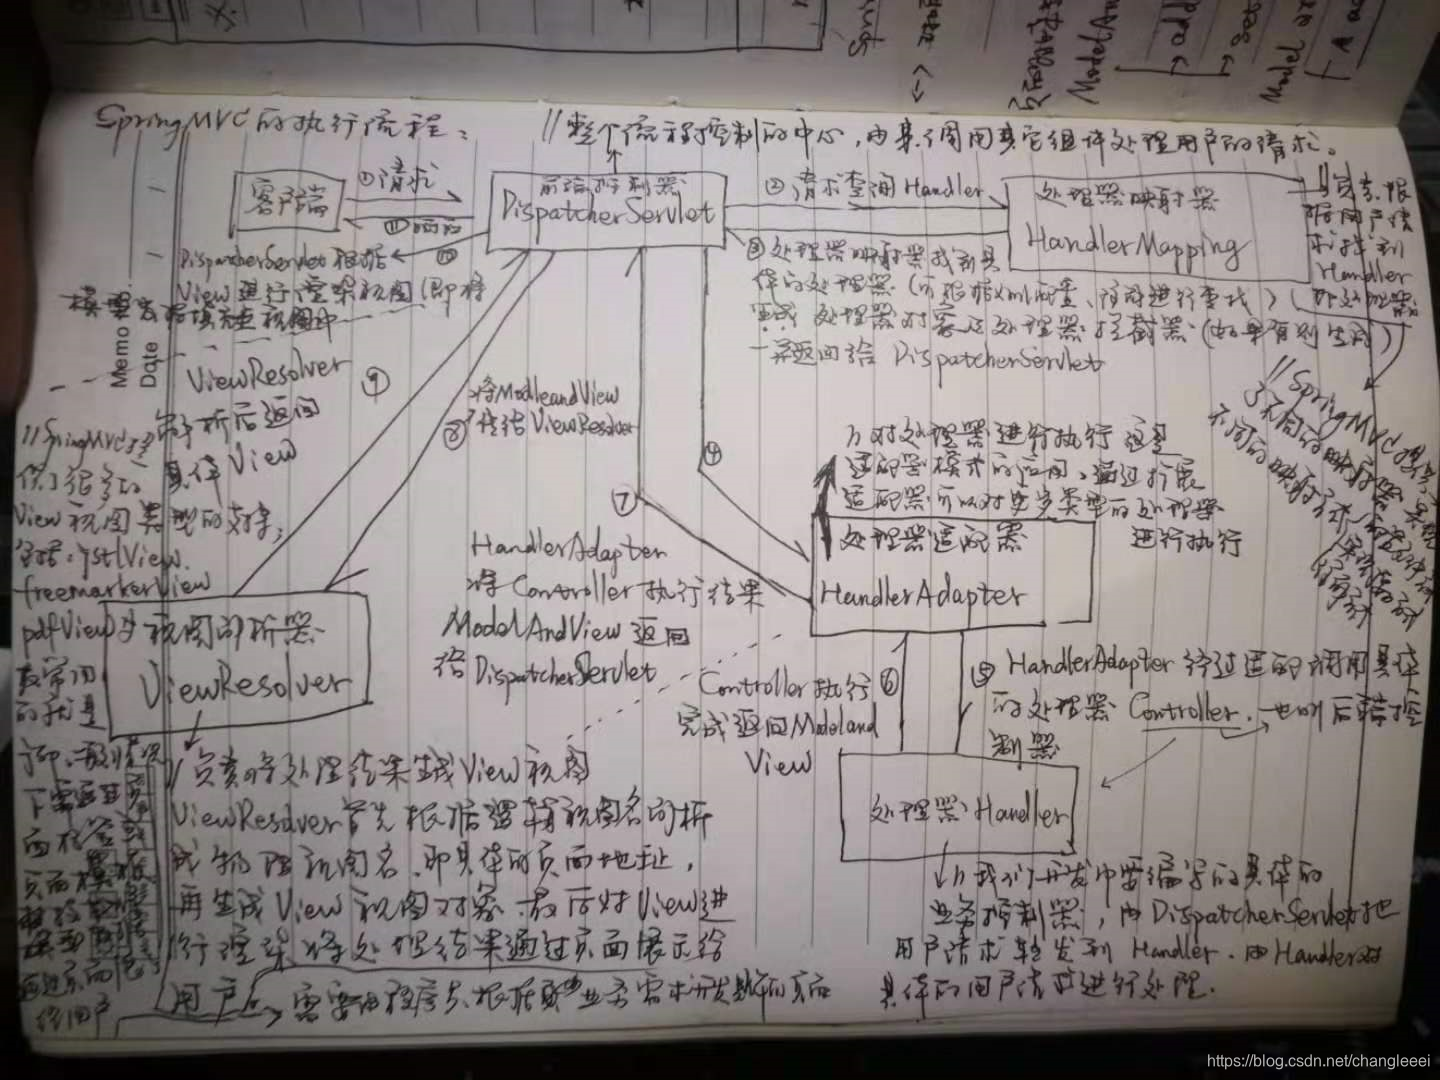 SpringMVC的执行流程：
//整个流程控制的中心,由其调用其它组件处理用户的请求。
客户端
①请求
⑪响应
前端控制器
DispatcherServlet
②请求查询Handler
处理器映射器
HandlerMapping
//负责根
据用户请
求找到
Handler
(即处理器)
③处理器映射器找到具
体的处理器(可根据xml配置、注解进行查找)
生成处理器对象及处理器拦截器(如果有则生成)
一并返回给 DispatcherServlet
//SpringMVC提供
3不同的映射器实现
不同的映射方式
⑩
DispatcherServlet根据
View进行渲染视图(即将
模型数据填充至视图中
Memo
Date
ViewResolver
⑨
解析后返回
具体View
将ModleandView
⑧传给ViewResolver
④
⑦
HandlerAdapter
将Controller执行结果
ModelAndView返回
给DispatcherServlet
//对处理器进行执行 这是
适配器模式的应用,通过扩展
适配器可以对更多类型的处理器
进行执行
处理器适配器
HandlerAdapter
Controller执行⑥
完成返回Modeland
View
⑤HandlerAdapter经过适配调用具体
的处理器Controller.也叫后端控
制器
处理器Handler
//我们开发中要编写的具体的
业务控制器,由DispatcherServlet把
用户请求转发到Handler.由Handler对
具体的用户请求进行处理.
//SpringMVC提
供了很多的
View视图类型的支持;
包括:jstlView.
freemarkerView
pdfView等
最常用
的就是
jsp.一般情况
下需要通过
页面
视图解析器
ViewResolver
//负责将处理结果生成View视图
ViewResolver首先根据逻辑视图名解析
成物理视图名.即具体的页面地址,
再生成View视图对象.最后对View进
行渲染将处理结果通过页面展示给
用户
需要由程序员根据业务需求开发具体的页面
ModelAn
Model
https://blog.csdn.net/changleeei